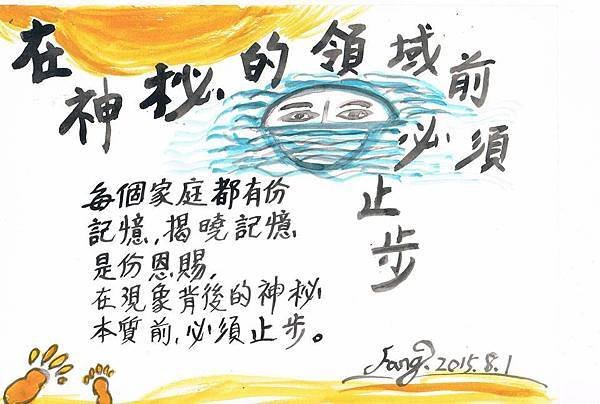 在神秘的領域前
必須止步
每個家庭都有份
記憶,揭曉記憶
是份恩賜,
在現象背後的神秘
本質前,必須止步。
Fang 2015.8.1